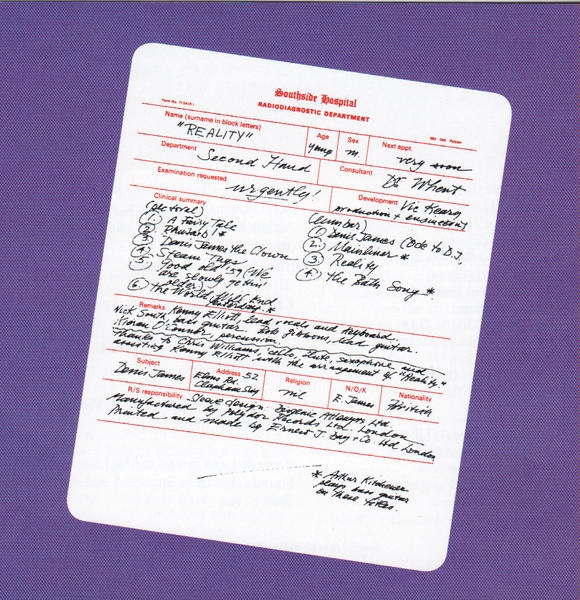 Southside Hospital
RADIODIAGNOSTIC DEPARTMENT
Name (surname in block letters)
"REALITY"
Age
young
Sex
m.
Next appt.
very soon
Department
Second Hand
Consultant
Dr Wheat
Examination requested
urgently!
Development Vic Keary
production + engineering
Clinical summary
(pectoral)
① A Fairy Tale
② Rhubarb! *
③ Denis James the Clown
④ Steam Tugs
⑤ Good old '59 (We
are slowly gettin'
older)
⑥ The World Will End
Yesterday *
(lumbar)
① Denis James (Ode to D.J.)
② Mainliner *
③ Reality
④ The Bath Song *
Remarks Kenny Elliott, lead vocals and keyboard.
Nick South, bass guitar. Bob Gibbons, lead guitar.
Kieran O'Connor, percussion.
Thanks to Chris Williams, 'cello, flute, saxophone and
assisting Kenny Elliott with the arrangement of "Reality"
Subject
Denis James
Address 52
Elms Rd.
Clapham
Religion
nil
N/O/K
E. James
Nationality
British
R/S responsibility Sleeve design: Ltd
Manufactured by Polydor Records Ltd. London
Printed and made by Ernest J. Day + Co. Ltd London
* Arthur Kitchener
plays bass guitar
on these titles.